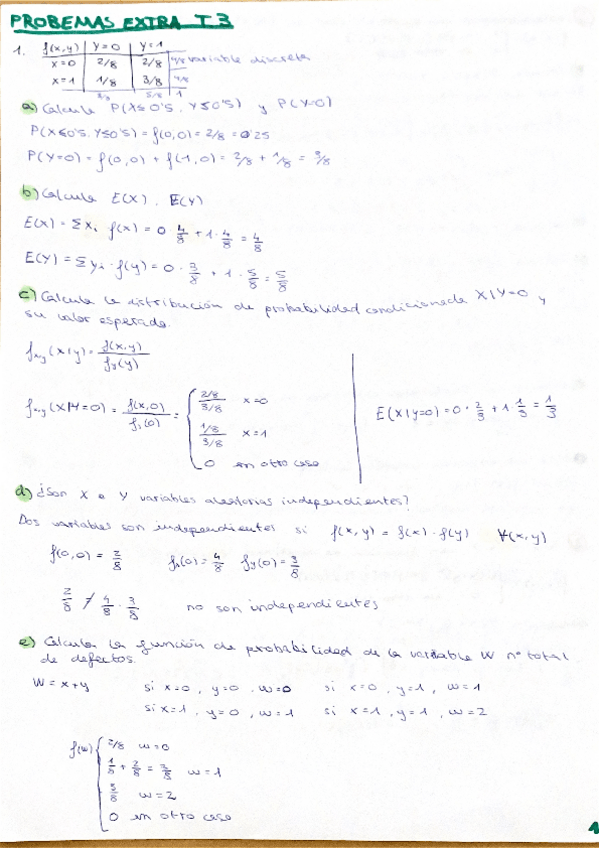 PROBEMAS EXTRA T.3
1. f(x,y) | Y=0 | Y=1
x=0 | 2/8 | 2/8 | 4/8 variable discreta
x=1 | 1/8 | 3/8 | 4/8
3/8 5/8 1
a) Calcule P(X≤0'5, Y≤0'5) y P(Y=0)
P(X≤0'5, Y≤0'5) = f(0,0) = 2/8 = 0'25
P(Y=0) = f(0,0) + f(1,0) = 2/8 + 1/8 = 3/8
b) Calcule E(X), E(Y)
E(X) = Σx. f(x) = 0 · 4/8 + 1 · 4/8 = 4/8
E(Y) = Σyi · f(y) = 0 · 3/8 + 1 · 5/8 = 5/8
c) Calcula la distribución de probabilidad condicionada X|Y=0 y
su valor esperado.
fx,y (x|y) = f(x,y) / fy(y)
fx,y (X|Y=0) = f(x,0) / fy(0) = { 2/8 / 3/8 x=0
1/8 / 3/8 x=1
0 en otro caso
E(X|y=0) = 0 · 2/3 + 1 · 1/3 = 1/3
d) ¿Son X e Y variables aleatorias independientes?
Dos variables son independientes si f(x,y) = f(x) · f(y) ∀(x,y)
f(0,0) = 2/8 fx(0) = 4/8 fy(0) = 3/8
2/8 ≠ 4/8 · 3/8 no son independientes
e) Calcular la función de probabilidad de la variable W nº total
de defectos.
W = x+y si x=0, y=0, w=0 si x=0, y=1, w=1
si x=1, y=0, w=1 si x=1, y=1, w=2
f(w) { 2/8 w=0
1/8 + 2/8 = 3/8 w=1
3/8 w=2
0 en otro caso
1